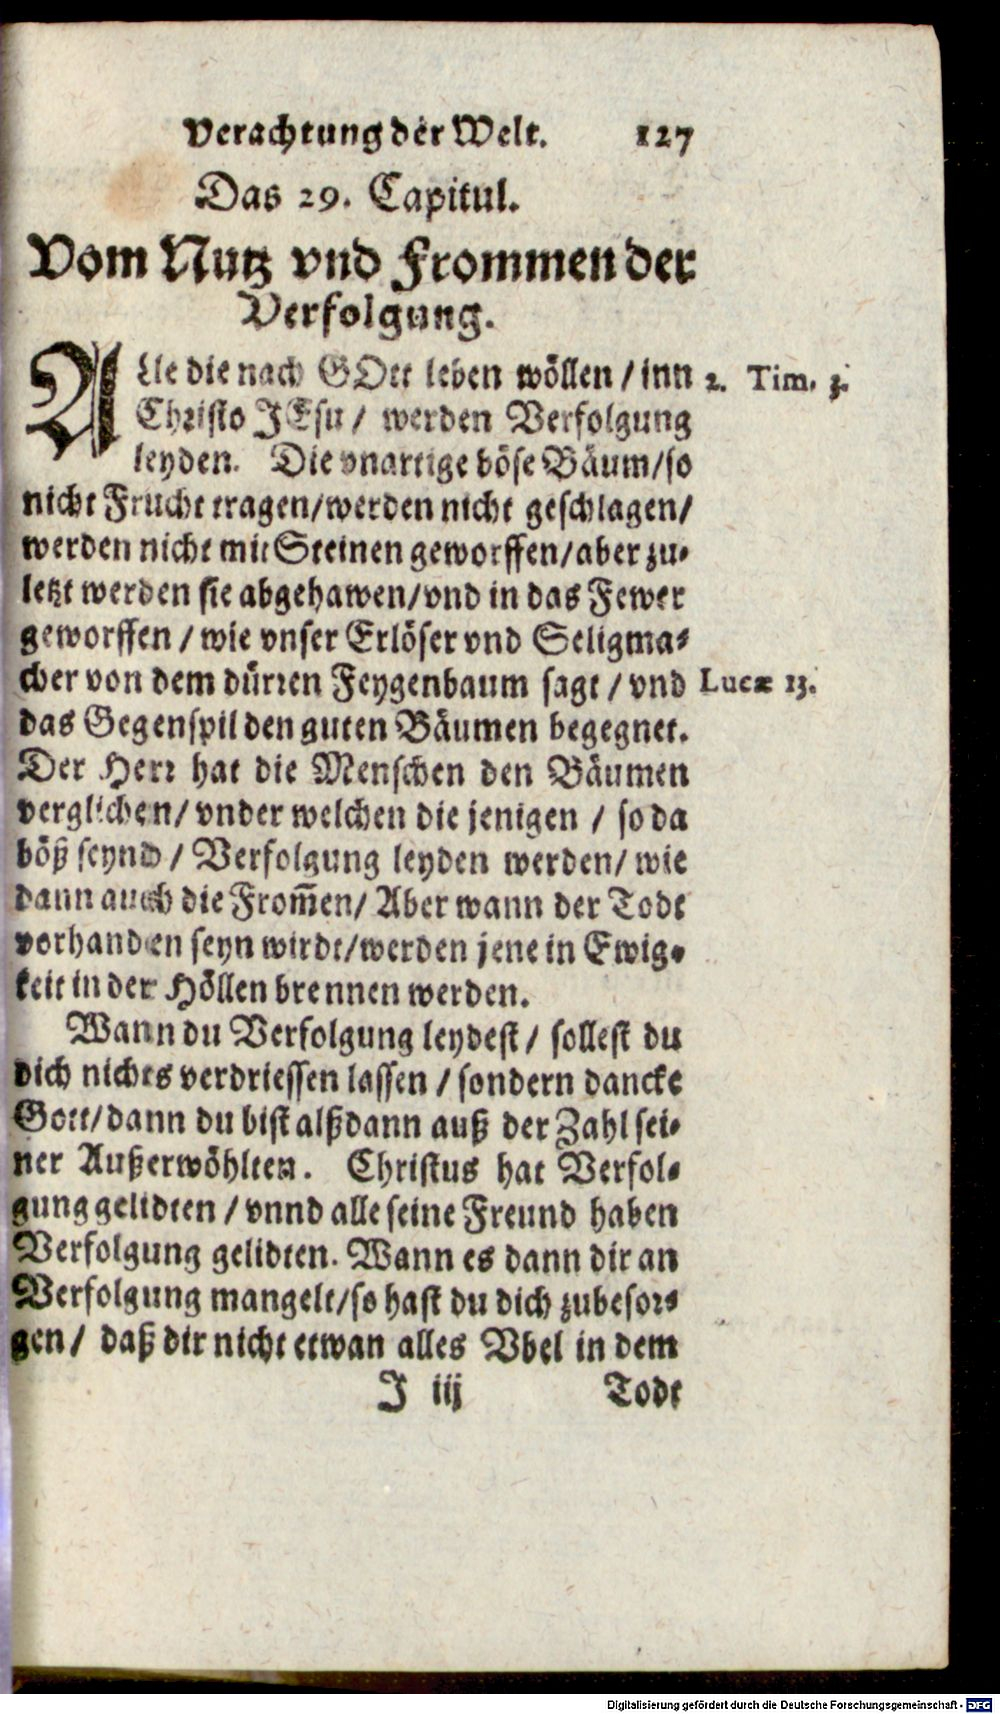 Verachtung der Welt. 127
Das 29. Capitul.
Vom Nutz vnd Frommen der
Verfolgung.
ALle die nach GOtt leben wöllen / inn 2. Tim. 3.
Christo JEsu / werden Verfolgung
leyden. Die vnartige böse Bäum/so
nicht Frucht tragen/werden nicht geschlagen/
werden nicht mit Steinen geworffen/aber zu-
letzt werden sie abgehawen/vnd in das Fewer
geworffen / wie vnser Erlöser vnd Seligma-
cher von dem dürren Feygenbaum sagt / vnd Lucæ 13.
das Gegenspil den guten Bäumen begegnet.
Der Herr hat die Menschen den Bäumen
verglichen/ vnder welchen die jenigen / so da
böß seynd / Verfolgung leyden werden/ wie
dann auch die From̃en/ Aber wann der Todt
vorhanden seyn wirdt/werden jene in Ewig-
keit in der Höllen brennen werden.
Wann du Verfolgung leydest / sollest du
dich nichts verdriessen lassen / sondern dancke
Gott/dann du bist alßdann auß der Zahl sei-
ner Außerwöhlten. Christus hat Verfol-
gung gelidten / vnnd alle seine Freund haben
Verfolgung gelidten. Wann es dann dir an
Verfolgung mangelt/so hast du dich zubesor-
gen / daß dir nicht etwan alles Vbel in dem
J iij Todt
Digitalisierung gefördert durch die Deutsche Forschungsgemeinschaft - DFG